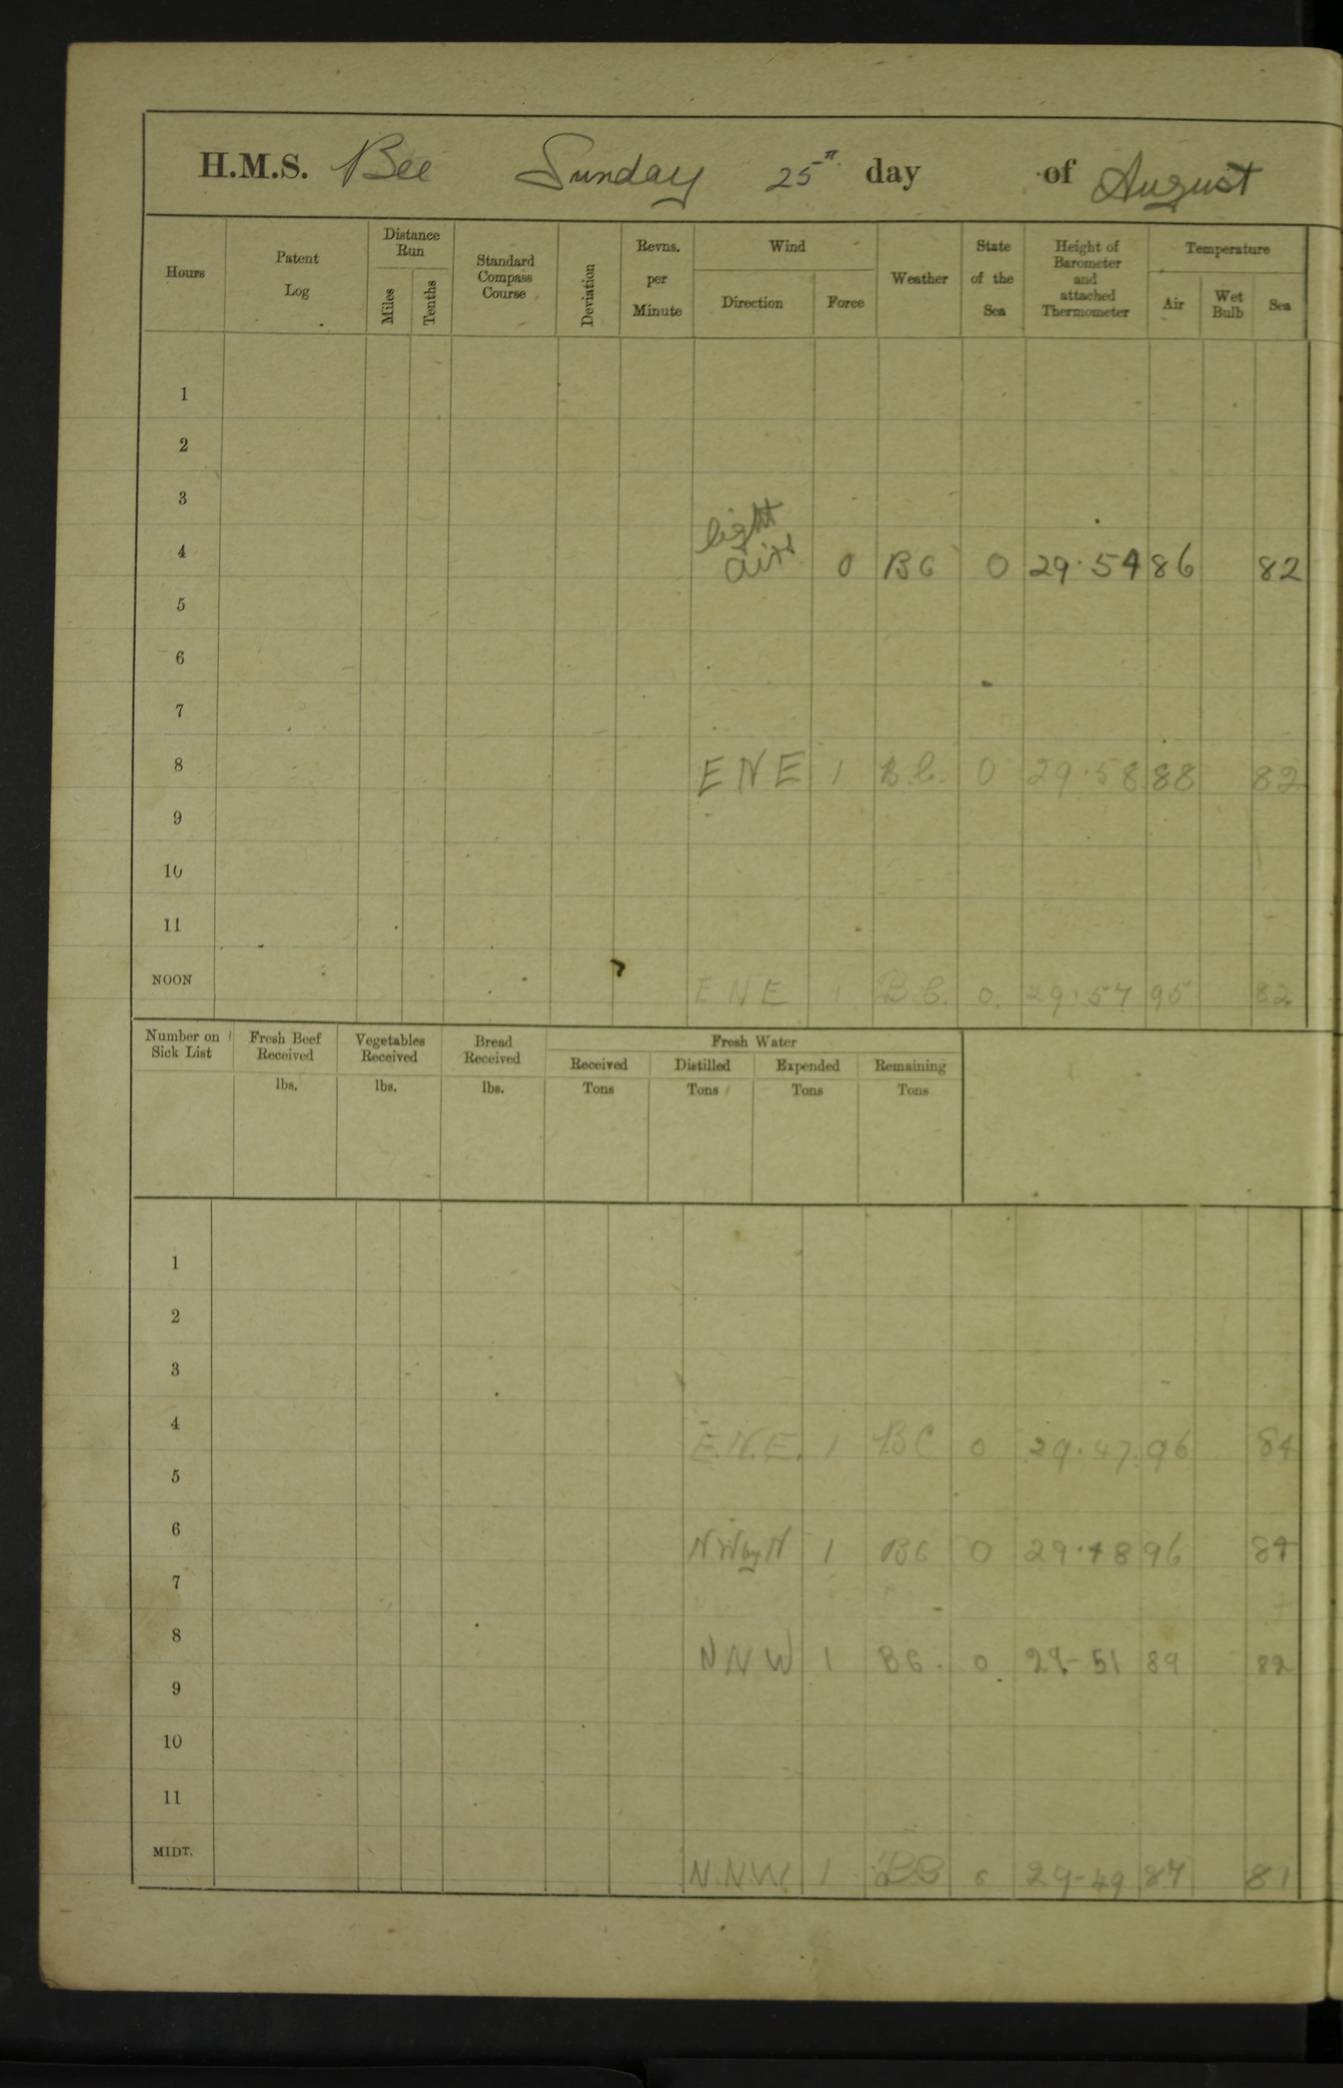 H.M.S. Bee Sunday 25th day of August
Hours Patent Log Distance Run Miles Tenths Standard Compass Course Deviation Revns. per Minute Wind Direction Force Weather State of the Sea Height of Barometer and attached Thermometer Temperature Air Wet Bulb Sea
1
2
3
4 light airs 0 BC 0 29.54 86 82
5
6
7
8 ENE 1 BC. 0 29.58 88 82
9
10
11
NOON ENE 1 BC. 0. 29.57 95 82
Number on Sick List Fresh Beef Received lbs. Vegetables Received lbs. Bread Received lbs. Fresh Water Received Tons Distilled Tons Expended Tons Remaining Tons
1
2
3
4 E.N.E. 1 BC 0 29.47 96 84
5
6 NWbyN 1 BC 0 29.48 96 84
7
8 NNW 1 BC. 0. 29-51 89 82
9
10
11
MIDT. N.N.W. 1 0 29-49 87 81